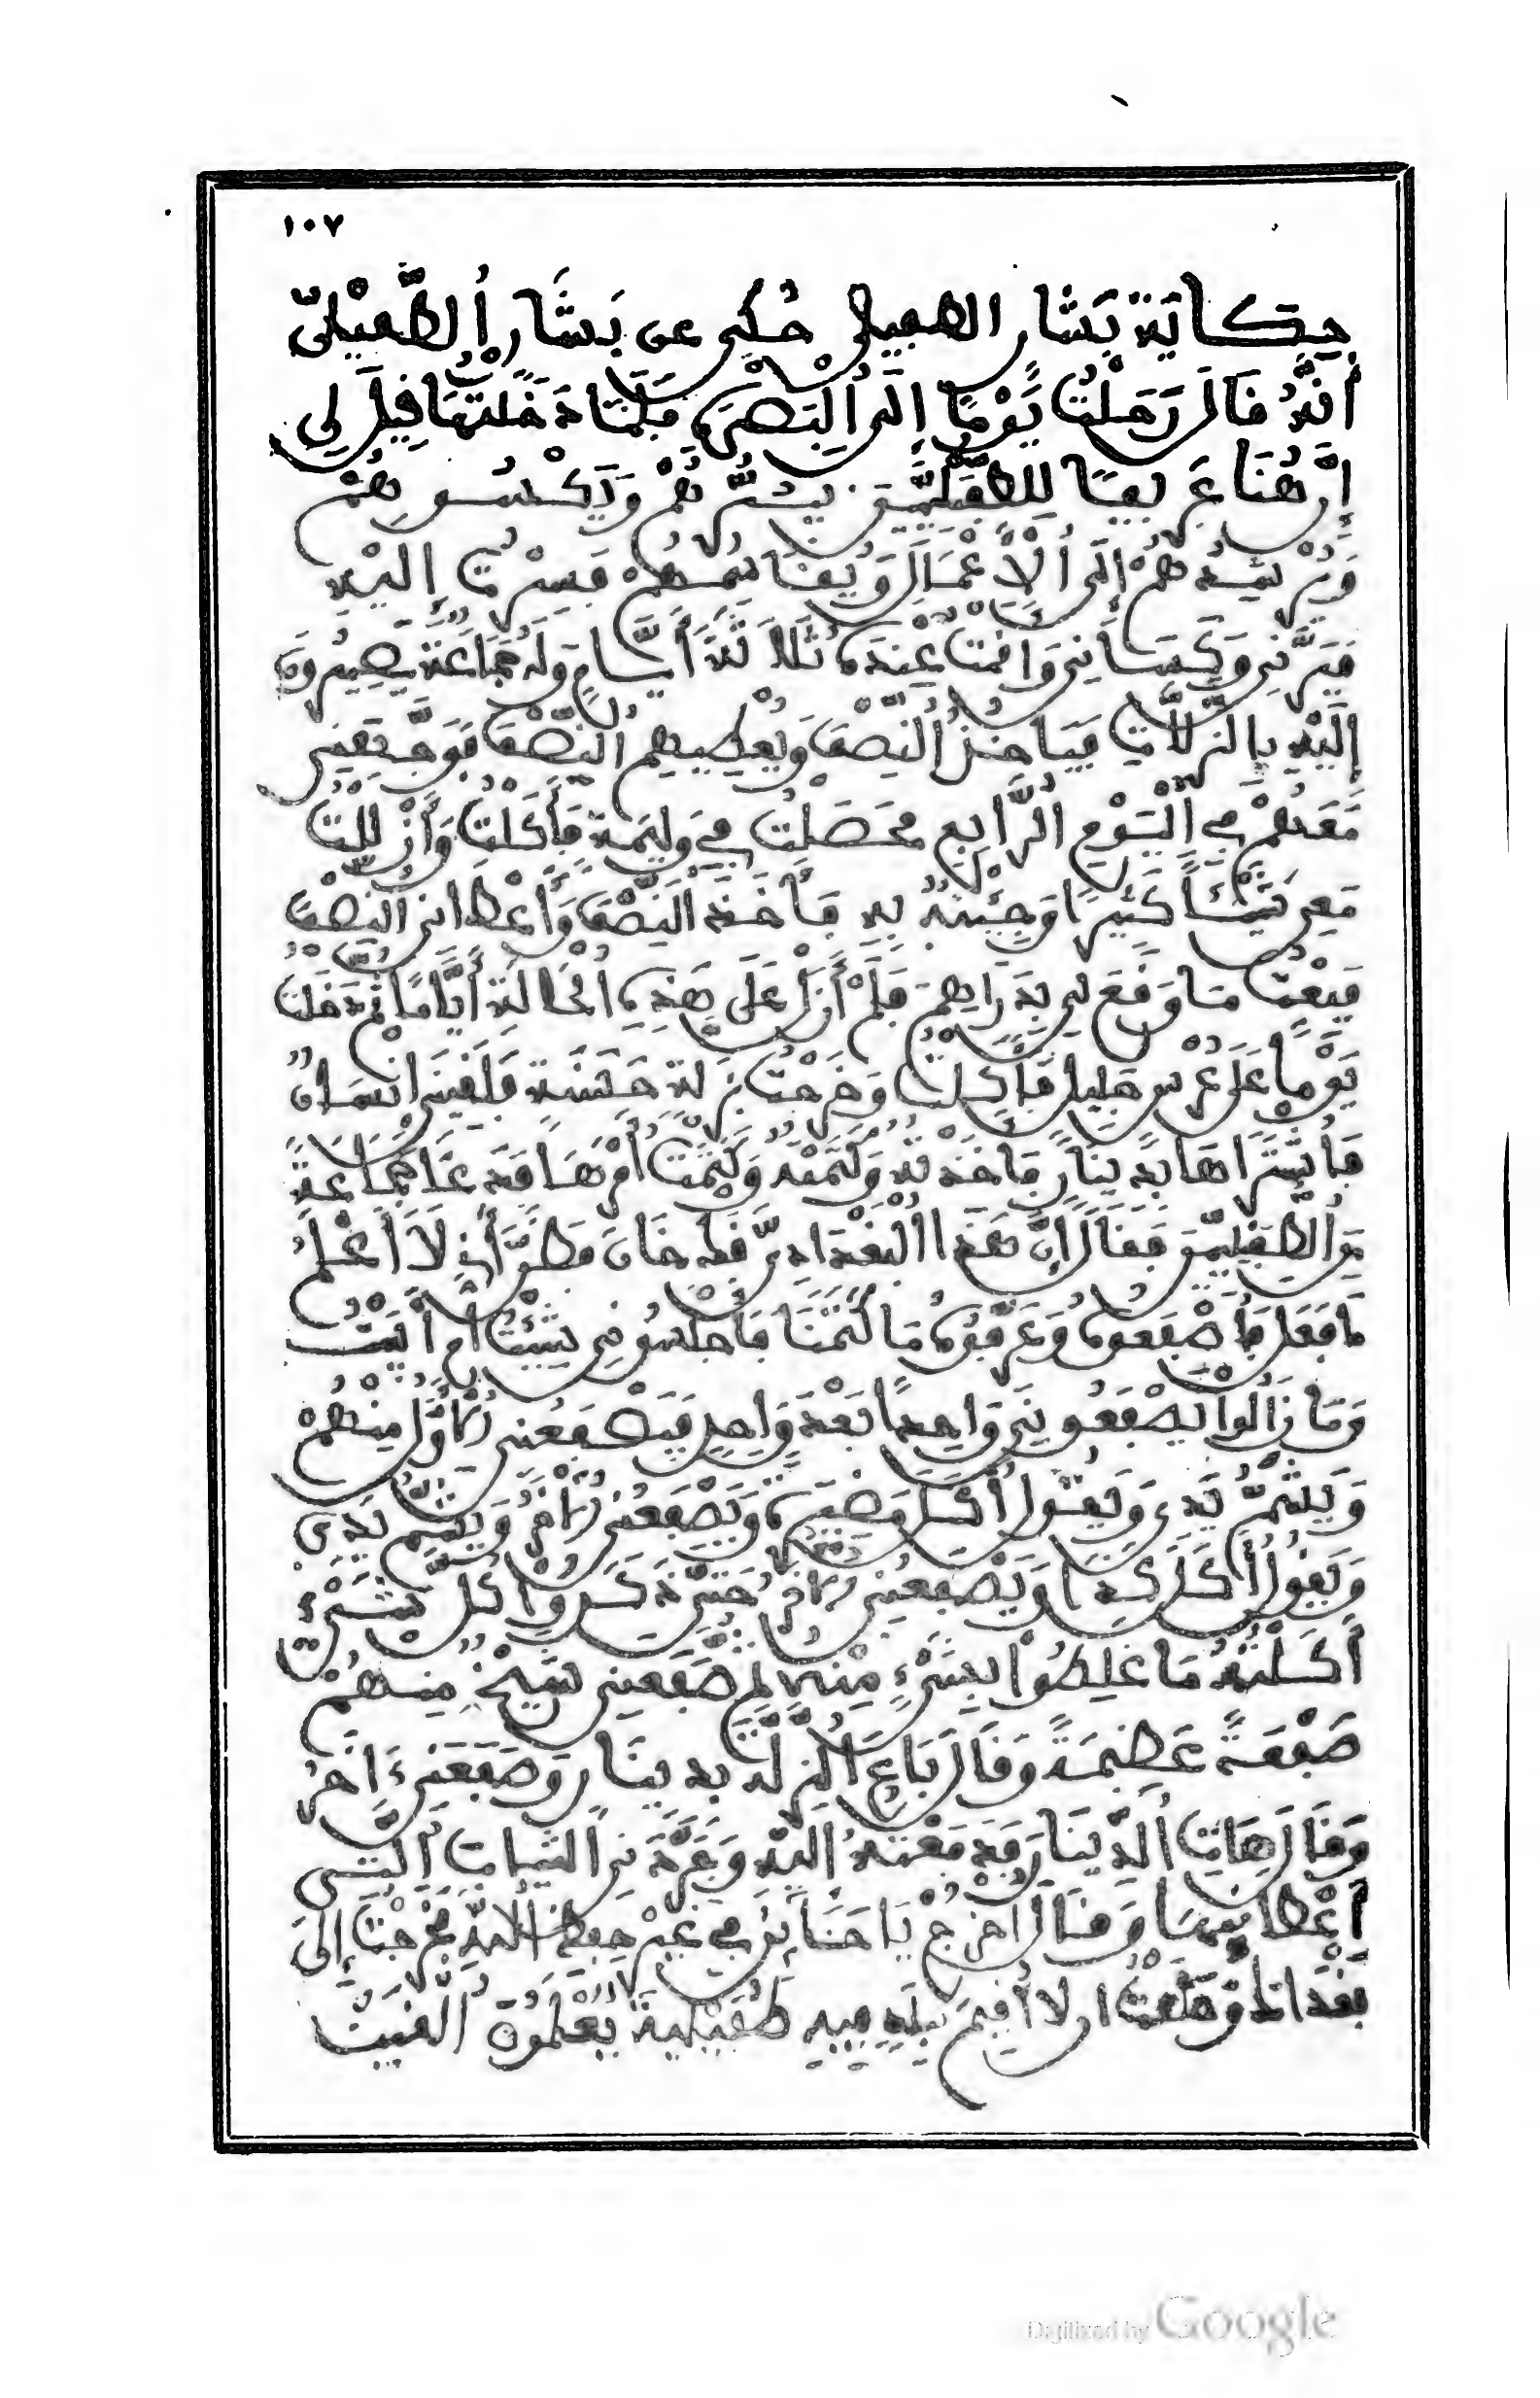 ١٠٧
حِكايَة بَشار الطفيلي حُكِي عن بَشَّارٍ ٱلطُّفَيْلِيّ
أنَّهُ قَالَ رَحَلْتُ يَوْمًا إِلَى ٱلْبَصْرَةِ فَلَمَّا دَخَلْتُهَا قِيلَ لِي
إِنَّ هُنَا عَرِيفًا لِلطُّفَيْلِيِّينَ يَسُرُّهُمْ وَيَكْسُوهُمْ
وَيُرْشِدُهُمْ إِلَى ٱلْأَعْمَالِ وَيُقَاسِمُهُمْ فَسِرْتُ إِلَيْهِ
فَبَرَّنِي وَكَسَانِي وَاقمْتُ عِنْدَهُ ثَلَاثَةَ أَيَّامٍ وَلَهُ جَمَاعَةٌ يَصِيرُونَ
إِلَيْهِ بِالزَّلَّاتِ فَيَاخُذُ ٱلنِّصْفَ وَيُعْطِيهِم ٱلنِّصْفَ فَوَجَّهَنِي
مَعَهُمْ فِي ٱلْيَوْمِ ٱلرَّابِعِ فحَصَلْتُ فِي وَلِيمَةٍ فَأَكَلْتُ وَأَزْلَلْتُ
مَعِي شَيْئًا كَثِيرًا وَجِئْتُهُ بِهِ فَأَخَذَ ٱلنِّصْفَ وَأَعْطَانِي ٱلنِّصْفَ
فَبِعْتُ مَا وَقَعَ لِي بِدَرَاهِمَ فَلَمْ أَزَلْ عَلَى هَذِهِ ٱلْحَالَةِ أَيَّامًا ثُمَّ دَخَلْتُ
يَوْمًا عَلَى عُرْسٍ جَلِيلٍ فَأَكَلْتُ وَخَرَجْتُ بِزَلَّةٍ حَسَنَةٍ فَلَقِيَنِي انْسَانٌ
فَاشْتَرَاهَا بِدِينَارٍ فَاخَذْتُهُ وَكَتَمْتُهُ وَكَتَمْتُ أَمْرَهَا فَدَعَا جَمَاعَةً
مِنَ ٱلطُّفَيْلِيِّينَ فَقَالَ إِنَّ هَذَا ٱلْبَغْدَادِيَّ قَد خَانَ فَظَنَّ أَنِّي لَا أَعْلَمُ
مَا فَعَلَ فَٱصْفَعُوهُ وَعَرِّفُوهُ مَا كَتَمَنَا فَاجْلَسُونِي شِئْتُ أَمْ أَبَيْتُ
وَمَا زَالُوا يَصْفَعُونِي وَاحِدًا بَعْدَ وَاحِدٍ فَيَصْفَعُنِي ٱلْأَوَّلُ مِنْهُمْ
وَيَشَمُّ يَدِي وَيَقُولُ أَكَلَ مَضِيرَةً وَيَصْفَعُنِي ٱلْآخَرُ وَيَشم يَدِي
وَيَقُولُ أَكَلَ كَذَا وَيَصْفَعُنِي ٱلْآخَرُ حَتَّى ذَكَرُوا كُلَّ شَيْءٍ
أَكَلْتُهُ مَا غَلِطُوا بِشَيْءٍ مِنْهُ ثُمَّ صَفَعَنِي شَيْخٌ مِنْهُمْ
صَفْعَةً عَظِيمَةً وَقَالَ بَاعَ ٱلزَّلَّةَ بِدِينَارٍ وَصَفَعَنِي ءَاخَرُ
وَقَالَ هَاتِ ٱلدِّينَارَ فَدَفَعْتُهُ إِلَيْهِ وَجَرَّدَنِي ٱلثِّيَابَ ٱلَّتِي
أَعْطَانِيهَا وَقَالَ ٱخْرُجْ يَا خَائِنُ فِي غَيْرِ حِفْظِ ٱللَّهِ فَخَرَجْتُ إِلَى
بَغْدَاد وَحَلَفْتُ ان لَا أُقِيمَ بِبَلَدٍ فِيهِ طُفَيْلِيَّةٌ يَعْلَمُونَ ٱلْغَيْبَ
Digitized by Google